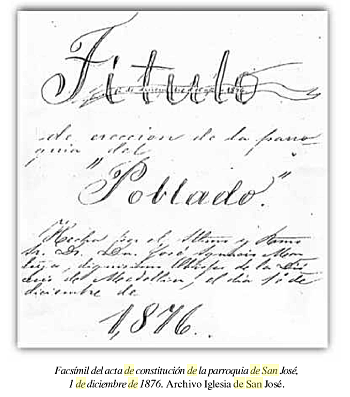 Titulo
de ereccion de la parro
quia del
"Poblado."
Hecha por el Iltmo y Rvmo
Sr. Dr. Dn. José Ignacio Mon
toya, dignisimo Obispo de la Dió
cesis de Medellin, el dia 1º de
diciembre de
1,876.
Facsímil del acta de constitución de la parroquia de San José,
1 de diciembre de 1876. Archivo Iglesia de San José.